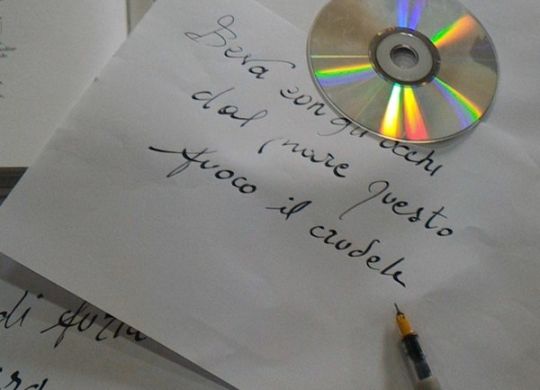 Beva con gli occhi
dal mare questo
fuoco il crudele
di furia